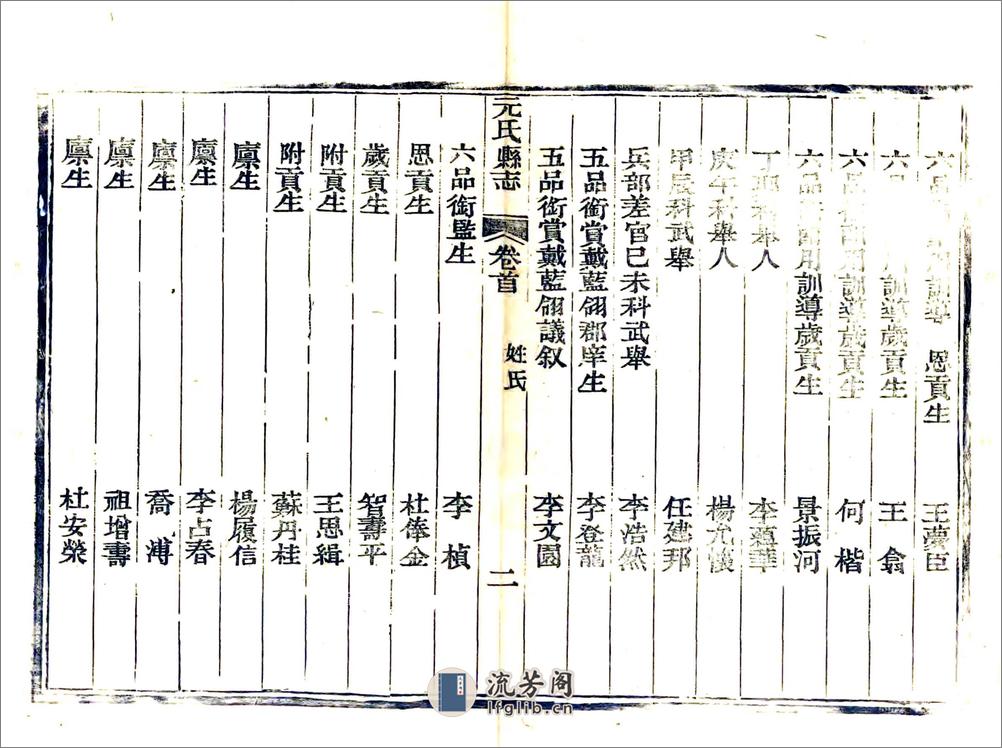 六品 訓導 恩貢生 王夢臣
六品 訓導歲貢生 王翕
六品 用訓導歲貢生 何楷
六品 用訓導歲貢生 景振河
丁卯科舉人 李蕴華
庚午科舉人 楊允懷
甲辰科武舉 任建邦
兵部差官已未科武舉 李浩然
五品銜賞戴藍翎郡庠生 李登龍
五品銜賞戴藍翎議叙 李文園
元氏縣志 卷首 姓氏 二
六品銜監生 李楨
恩貢生 杜俸金
歲貢生 智壽平
附貢生 王思緝
附貢生 蘇丹桂
廩生 楊履信
廩生 李占春
廩生 喬溥
廩生 祖增壽
廩生 杜安榮
流芳阁
lfglib.cn